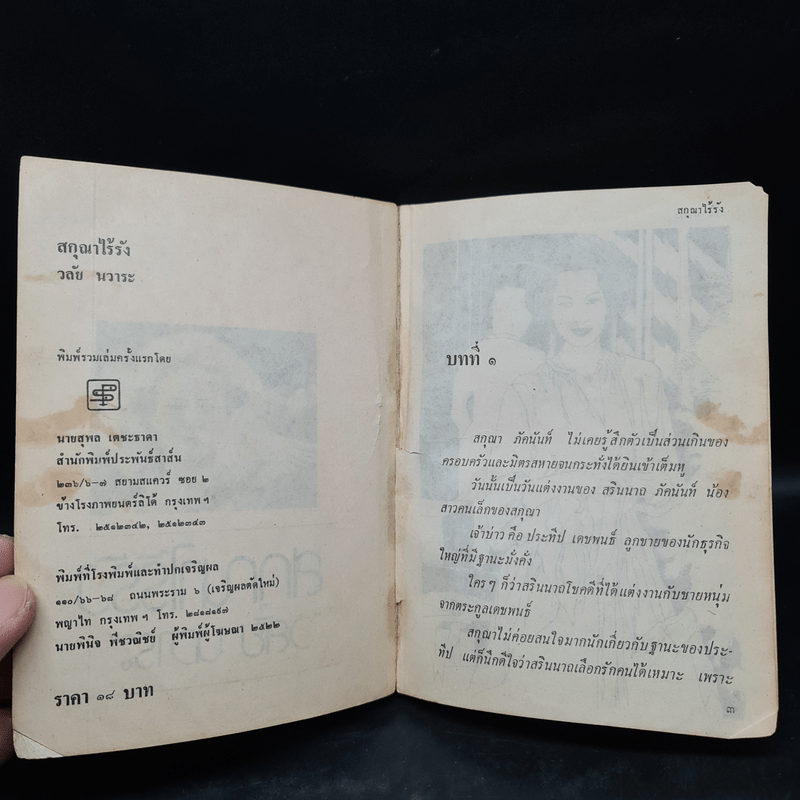 สกุณาไร้รัง
วลัย นวาระ
พิมพ์รวมเล่มครั้งแรกโดย
นายสุพล เตชะธาดา
สำนักพิมพ์ประพันธ์สาส์น
๒๓๖/๖-๗ สยามสแควร์ ซอย ๒
ข้างโรงภาพยนตร์ลิโด้ กรุงเทพฯ
โทร. ๒๕๑๒๓๔๒, ๒๕๑๒๓๔๓
พิมพ์ที่โรงพิมพ์และทำปกเจริญผล
๑๑๐/๖๖-๖๘ ถนนพระราม ๖ (เจริญผลตัดใหม่)
พญาไท กรุงเทพฯ โทร.
นายพินิจ พีชวณิชย์ ผู้พิมพ์ผู้โฆษณา ๒๕๒๒
ราคา ๑๘ บาท
สกุณาไร้รัง
บทที่ ๑
สกุณา ภัคนันท์ ไม่เคยรู้สึกตัวเป็นส่วนเกินของ
ครอบครัวและมิตรสหายจนกระทั่งได้ยินเข้าเต็มหู
วันนั้นเป็นวันแต่งงานของ สรินนาถ ภัคนันท์ น้อง
สาวคนเล็กของสกุณา
เจ้าบ่าว คือ ประทีป เดชพนธ์ ลูกชายของนักธุรกิจ
ใหญ่ที่มีฐานะมั่งคั่ง
ใครๆ ก็ว่าสรินนาถโชคดีที่ได้แต่งงานกับชายหนุ่ม
จากตระกูลเดชพนธ์
สกุณาไม่ค่อยสนใจมากนักเกี่ยวกับฐานะของประ-
ทีป แต่ก็นึกดีใจว่าสรินนาถเลือกรักคนได้เหมาะ เพราะ
๓